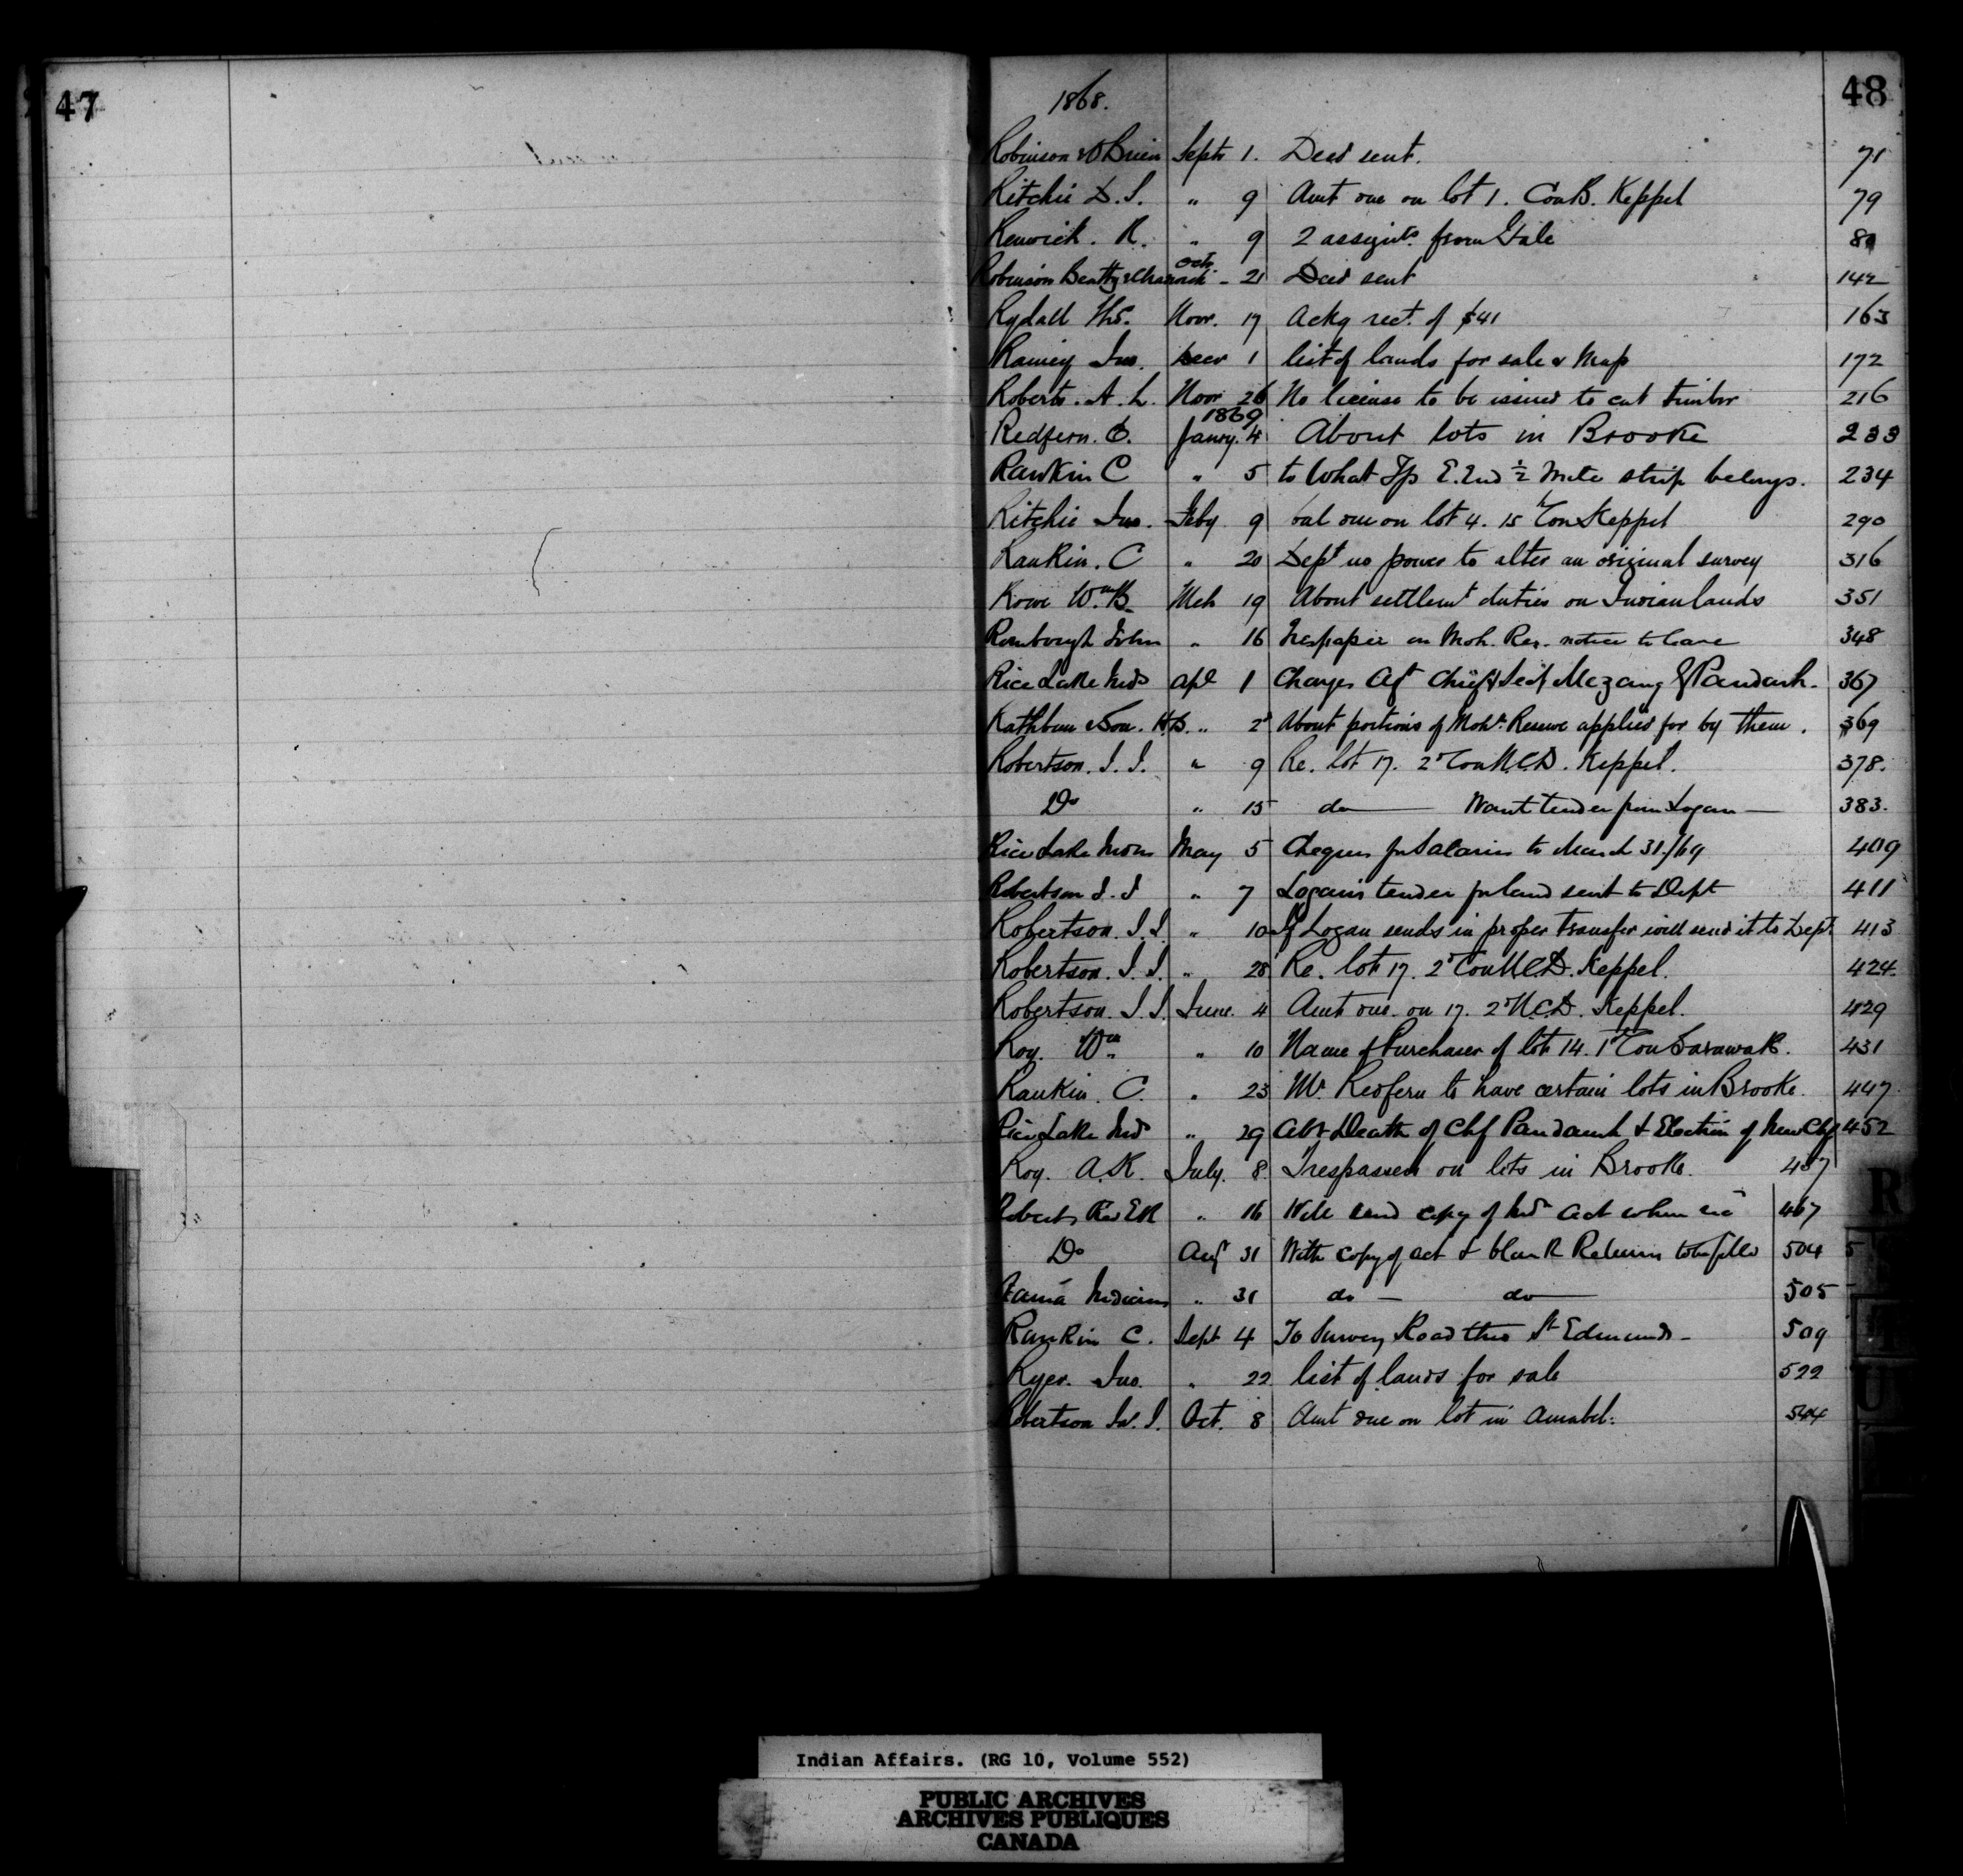 47
48
1868.
Robinson & O'Brien Septr 1. Deed sent. 71
Ritchie D. S. " 9 Amt due on lot 1. Con B. Keppel 79
Renwick. R. " 9 2 assignts. from Gale 80
Robinson Beatty & Octr. - 21 Deed sent 142
Rydall Ths. Novr. 17 Ackg rect. of $41 163
Ramey Jno. Decr 1 list of lands for sale & Map 172
Roberts. A. L. Novr 26 No license to be issued to cut timber 216
1869
Redfern. C. Janry. 4 About lots in Brooke 233
Rankin C " 5 to What Tp E. End ½ Mile strip belongs. 234
Ritchie Jno. Feby 9 bal due on lot 4. 15th Con Keppel 290
Rankin. C " 20 Dept no power to alter an original survey 316
Rowe Wm. B. Mch 19 About settlemt duties on Indian lands 351
John " 16 Trespasser on Moh. Res. notice to leave 348
Rice Lake Inds Apl 1 Charges Agt Chief & Secy Mczang & Paudash. 367
Rathbun & Son. H.B. " 2d About portions of Mohk. Reserve applied for by them. 369
Robertson. J. J. " 9 Re. lot 17. 2d Con N.C.D. Keppel. 378.
Do " 15 do Want tender from Logan 383.
Rice Lake Indns May 5 Cheques for Salaries to March 31/69 409
Robertson J. J " 7 Logan's tender for land sent to Dept 411
Robertson. J. J. " 10 If Logan sends in proper transfer will send it to Dept. 413
Robertson. J. J. " 28 Re. lot 17. 2d Con N.C.D. Keppel. 424.
Robertson. J. J. June. 4 Amt due. on 17. 2d N.C.D. Keppel. 429
Roy. Wm. " 10 Name of Purchaser of lot 14. 1st Con Sarawak. 431
Rankin. C. " 23 Mr. Redfern to have certain lots in Brooke. 447.
Rice Lake Inds " 29 Abt Death of Chf Paudash & Election of New Chf 452
Roy. A.K. July. 8. Trespassers on lots in Brooke. 457
Roberts Rev E R " 16 Will send copy of Indn Act when recd 467
Do Aug 31 With copy of act & blank Returns to be filled 504 5
Rama Indians " 31 do - do 505
Rankin C. Sept 4 To Survey Road thro St Edmunds - 509
Ryer. Jno. " 22 list of lands for sale 522
Robertson J. Oct. 8 Amt due on lot in Amabel. 544
R
T
U
Indian Affairs. (RG 10, Volume 552)
PUBLIC ARCHIVES
ARCHIVES PUBLIQUES
CANADA